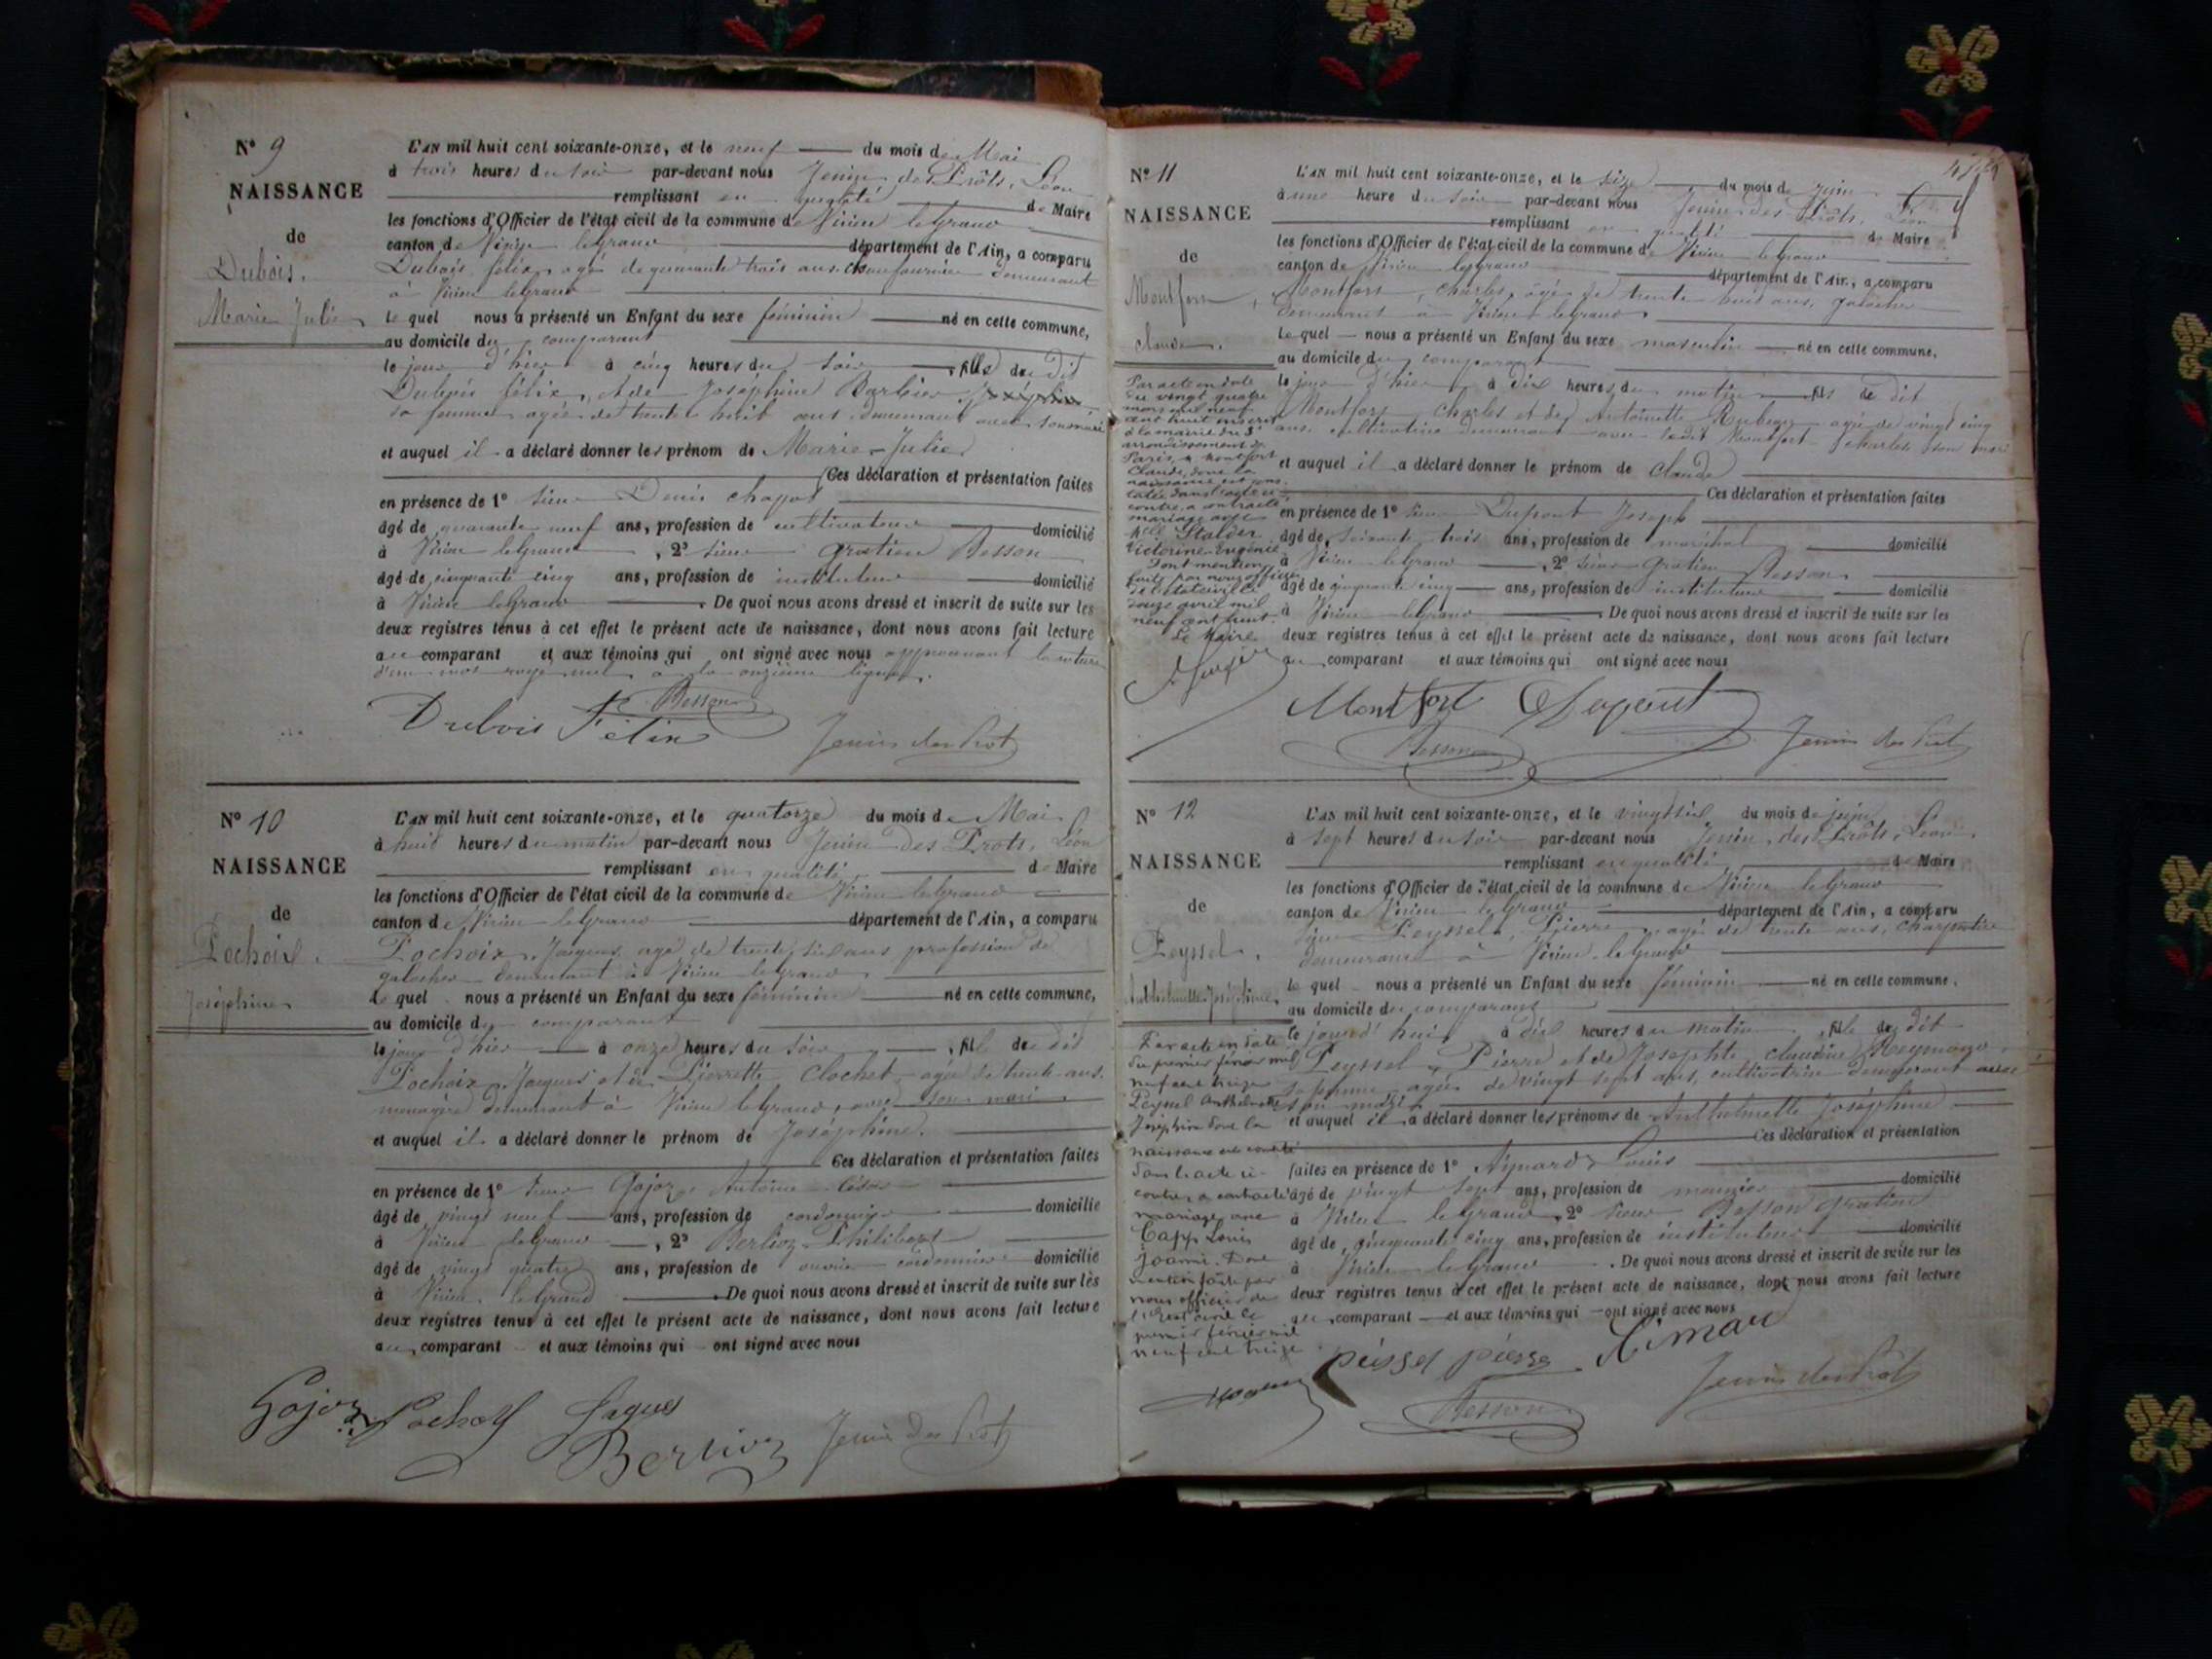 N° 9
NAISSANCE
de
Dubois.
Marie Julie
L'AN mil huit cent soixante-onze, et le neuf du mois de Mai
à trois heures du soir par-devant nous Jenin des Prôts, Léon
remplissant en qualité de Maire
les fonctions d'Officier de l'état civil de la commune de Virieu le Grand
canton de Virieu le Grand département de l'Ain, a comparu
Dubois félix, agé de quarante trois ans, chaufournier demeurant
à Virieu le Grand
le quel nous a présenté un Enfant du sexe féminin né en cette commune,
au domicile du comparant
le jour d'hier à cinq heures du soir fille du dit
Dubois félix, et de Joséphine Barbier
sa femme agée de trente huit ans demeurant avec son mari
et auquel il a déclaré donner les prénom de Marie-Julie
Ces déclaration et présentation faites
en présence de 1° sieur Denis chapot
âgé de quarante neuf ans, profession de cultivateur domicilié
à Virieu le Grand, 2° sieur Gratien Besson
âgé de cinquante cinq ans, profession de instituteur domicilié
à Virieu le Grand. De quoi nous avons dressé et inscrit de suite sur les
deux registres tenus à cet effet le présent acte de naissance, dont nous avons fait lecture
au comparant et aux témoins qui ont signé avec nous approuvant la rature
d'un mot rayé nul à la onzième ligne.
Besson
Dubois Félix Jenin des Prot
N° 10
NAISSANCE
de
Pochoix.
Joséphine
L'AN mil huit cent soixante-onze, et le quatorze du mois de Mai
à huit heures du matin par-devant nous Jenin des Prots, Léon
remplissant en qualité de Maire
les fonctions d'Officier de l'état civil de la commune de Virieu le Grand
canton de Virieu le Grand département de l'Ain, a comparu
Pochoix, Jacques, agé de trente six ans profession de
galocher demeurant à Virieu le Grand
le quel nous a présenté un Enfant du sexe féminin né en cette commune,
au domicile du comparant
le jour d'hier à onze heures du soir, fille du dit
Pochoix, Jacques et de Pierrette Clochet, agée de trente ans,
menagère demeurant à Virieu le grand, avec son mari
et auquel il a déclaré donner le prénom de Joséphine.
Ces déclaration et présentation faites
en présence de 1° sieur Gojoz, Antoine César
âgé de vingt neuf ans, profession de cordonnier domicilié
à Virieu le Grand, 2° Berlioz Philibert
âgé de vingt quatre ans, profession de ouvrier cordonnier domicilié
à Virieu le Grand. De quoi nous avons dressé et inscrit de suite sur les
deux registres tenus à cet effet le présent acte de naissance, dont nous avons fait lecture
au comparant et aux témoins qui ont signé avec nous
Gojoz Jaques
Berlioz Jenin des Prot
N° 11
NAISSANCE
de
Montfort,
claude.
Par acte en date
du vingt quatre
mars mil neuf
cent huit inscrit
à la mairie du
arrondissement de
Paris, Montfort
Claude, dont la
naissance est cons
tatée dans l'acte ci
contre, a contracté
mariage avec
Melle Stalder
Victorine Eugénie
Dont mention
faite par nous officier
de l'état civil le
douze avril mil
neuf cent huit.
Le Maire
L'AN mil huit cent soixante-onze, et le seize du mois de Juin
à une heure du soir par-devant nous Jenin des Prôts, Léon
remplissant en qualité de Maire
les fonctions d'Officier de l'état civil de la commune de Virieu le Grand
canton de Virieu le Grand département de l'Ain, a comparu
Montfort, Charles, âgé de trente huit ans, galocher
demeurant à Virieu le Grand.
le quel nous a présenté un Enfant du sexe masculin né en cette commune,
au domicile du comparant
le jour d'hier à dix heures du matin fils de dit
Montfort, Charles et de Antoinette agée de vingt cinq
ans, cultivatrice demeurant avec ledit Montfort Charles son mari
et auquel il a déclaré donner le prénom de claude
Ces déclaration et présentation faites
en présence de 1° sieur Dupont Joseph
âgé de soixante trois ans, profession de maréchal domicilié
à Virieu le Grand, 2° sieur Gratien Besson
âgé de cinquante cinq ans, profession de instituteur domicilié
à Virieu le Grand. De quoi nous avons dressé et inscrit de suite sur les
deux registres tenus à cet effet le présent acte de naissance, dont nous avons fait lecture
au comparant et aux témoins qui ont signé avec nous
Montfort Dupont
Besson Jenin des Prot
N° 12
NAISSANCE
de
Peyssel,
Anthelmette Joséphine
Par acte en date
du premier février mil
neuf cent treize
Peyssel Anthelmette
Joséphine dont la
naissance est constaté
dans l'acte ci-
contre, a contracté
mariage avec
Louis
Joanni. Dont
mention faite par
nous officier de
l'Etat civil le
premier février mil
neuf cent treize
L'AN mil huit cent soixante-onze, et le vingt six du mois de juin
à sept heures du soir par-devant nous Jenin des Prôts, Léon
remplissant en qualité de Maire
les fonctions d'Officier de l'état civil de la commune de Virieu le Grand
canton de Virieu le Grand département de l'Ain, a comparu
sieur Peyssel, Pierre, agé de trente ans, charpentier
demeurant à Virieu le Grand
le quel nous a présenté un Enfant du sexe féminin né en cette commune,
au domicile du comparant
le jourd'hui à dix heures du matin, fille du dit
Peyssel, Pierre et de Josephte claudine Reymond
sa femme agée de vingt sept ans, cultivatrice demeurant avec
son mari
et auquel il a déclaré donner les prénoms de Anthelmette Joséphine
Ces déclaration et présentation
faites en présence de 1° Aynard Louis
âgé de vingt sept ans, profession de meunier domicilié
à Virieu le Grand, 2° sieur Besson Gratien
âgé de cinquante cinq ans, profession de instituteur domicilié
à Virieu le Grand. De quoi nous avons dressé et inscrit de suite sur les
deux registres tenus à cet effet le présent acte de naissance, dont nous avons fait lecture
au comparant et aux témoins qui ont signé avec nous
peissel pierre
Besson Jenin des Prot